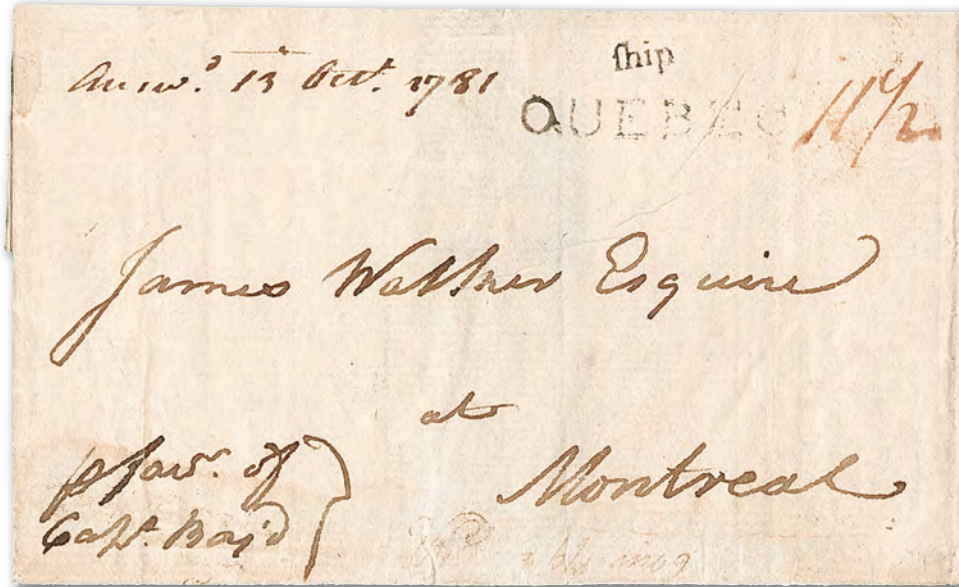 Answ.^d 13 Oct.^r 1781
ſhip
QUEBEC 11 1/2
James Walker Esquire
at
Montreal
p favr. of
Capt. Boyd